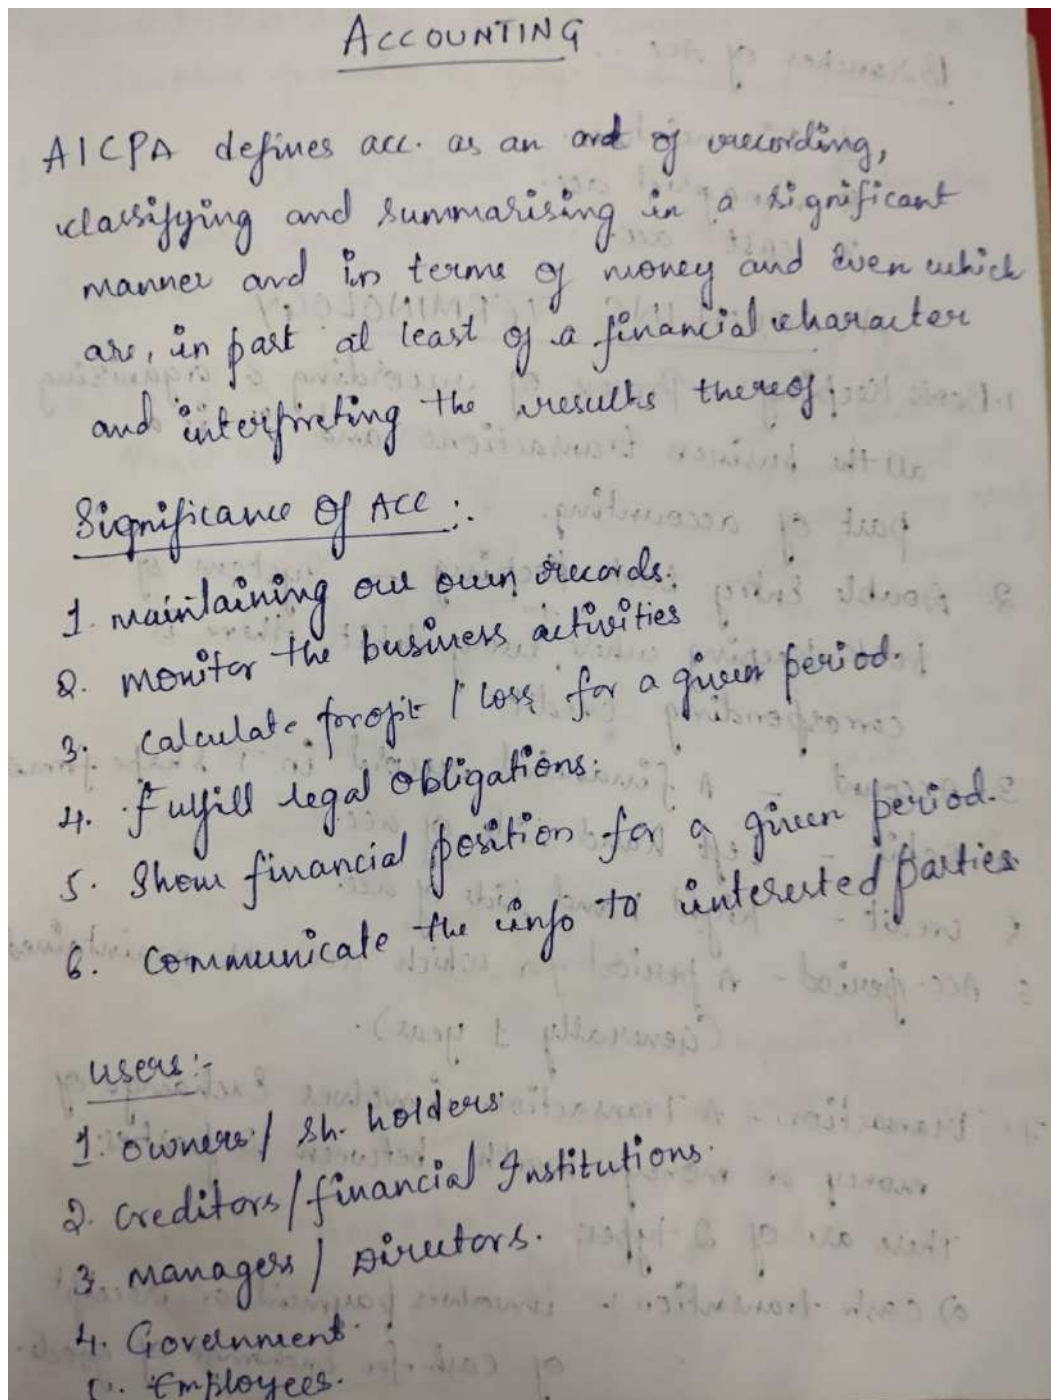 ACCOUNTING
AICPA defines acc. as an art of recording,
classifying and summarising in a significant
manner and in terms of money and even which
are, in part at least of a financial character
and interpreting the results thereof.
Significance Of Acc :-
1. Maintaining our own records.
2. Monitor the business activities
3. Calculate profit / loss for a given period.
4. Fulfill legal obligations.
5. Show financial position for a given period.
6. Communicate the info to interested parties.
Users:-
1. Owners / sh. holders.
2. Creditors / financial Institutions.
3. Managers / Directors.
4. Government.
5. Employees.